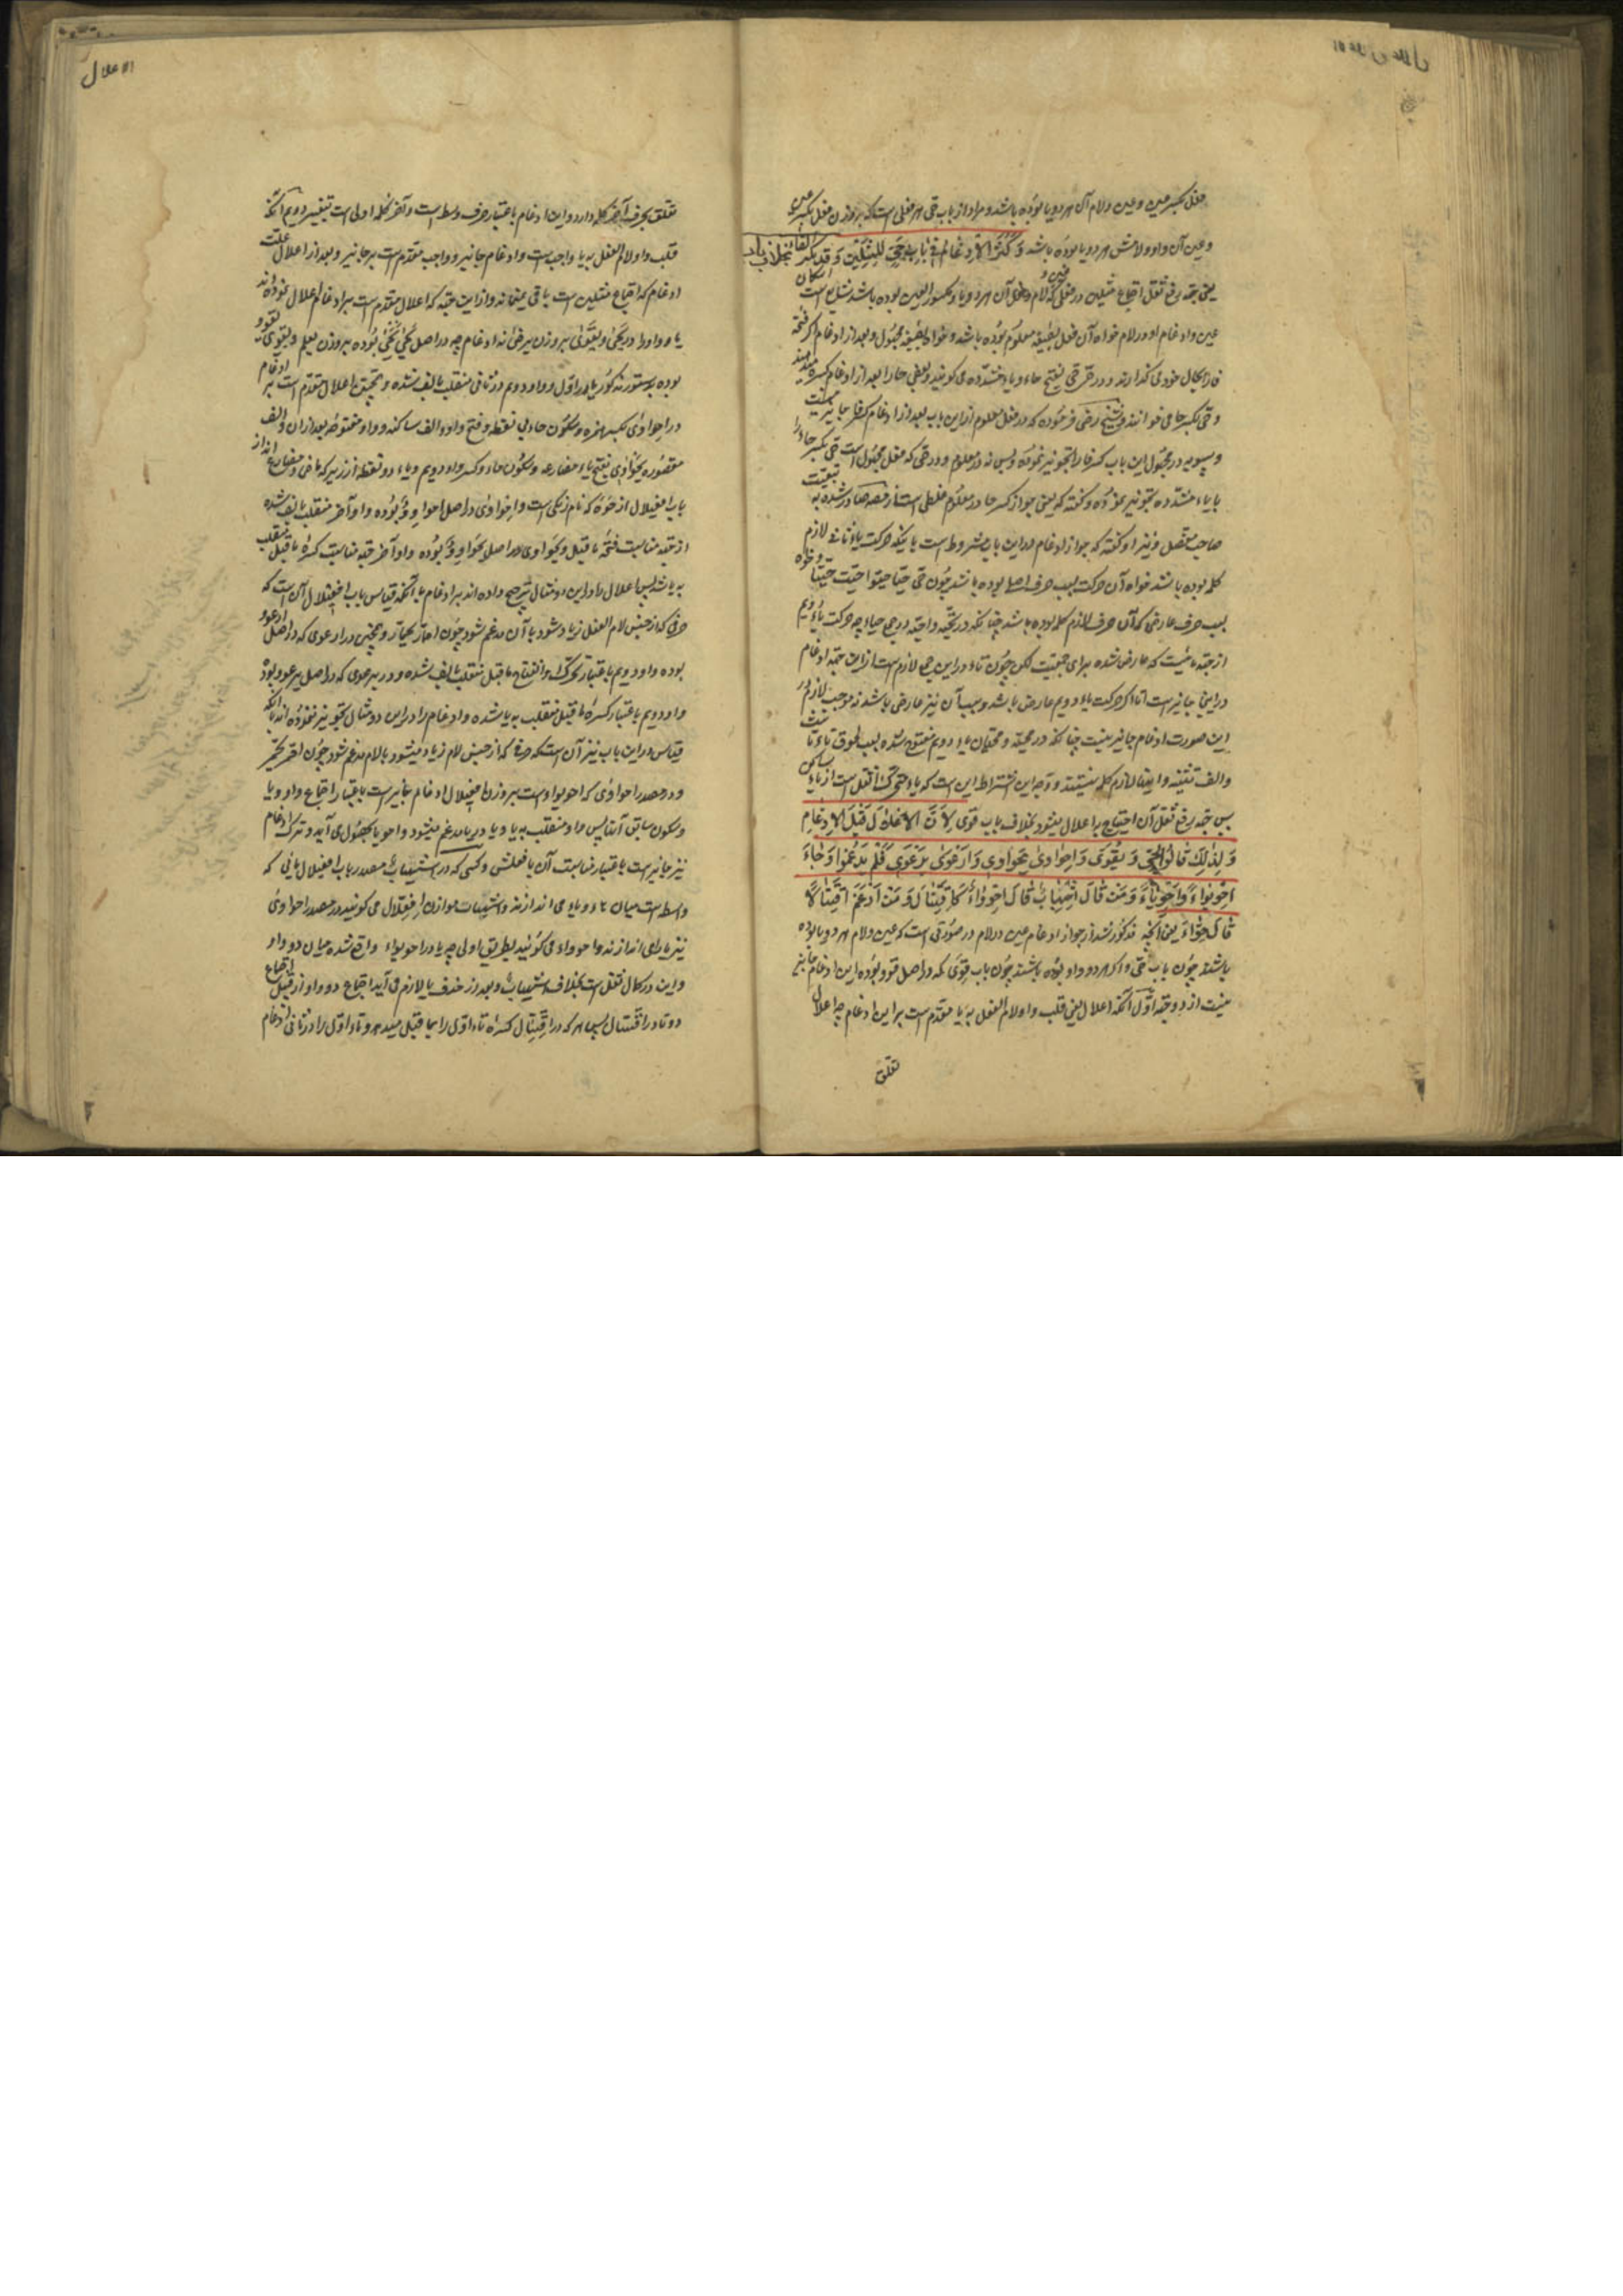 فعل بکسر عین و عین و لام آن هر دو یا بوده باشد و مراد از باب حی هر فعلی است که بر وزن فعل بکسر عین
و عین آن واو و لامش هر دو یا بوده باشد وَكَثُرَ الْاِدْغَامُ فِي بَابِ حَيِيَ لِلْمِثْلَيْنِ وَقَدْ يُكْسَرُ الْفَاءُ بخلاف باب
یعنی بجهة رفع ثقل اجتماع مثلین در فعلی که عین و لام آن هر دو یا و مکسور العین بوده باشد شایع است اسکان
عین و ادغام او در لام خواه آن فعل بصیغه معلوم بوده باشد و خواه بصیغه مجهول و بعد از ادغام اکثر فتحه
فا را بحال خود می گذارند و در حی بفتح حاء و یاء مشدده می گویند و بعضی حا را بعد از ادغام کسره میدهند
و حی بکسر حا می خوانند و شیخ رضی فرموده که در فعل معلوم از این باب بعد از ادغام کسر فا جایز نیست
و سیبویه در مجهول این باب کسر فا را تجویز نموده و بس نه در معلوم و در حی که فعل مجهول است حی بکسر حاء
با یاء مشدده تجویز نموده و گفته که یعنی جواز کسر حا در معلوم غلطی است
صاحب مفصل و نیز او گفته که جواز ادغام در این باب مشروط است باینکه حرکت یاء ثانی لازم
کلمه بوده باشد خواه آن حرکت بسبب حرف اصلی بوده باشد چون حی حیا حیوا حیت حیتا و خواه
بسبب حرف عارضی که آن حرف لازم کلمه بوده باشد چنانکه در تحیة و احیة در جمع حیاء چه حرکت یاء دویم
از جهة تاست که عارض شده برای جمعیت لکن چون تاء در این جمع لازم است از این جهة ادغام
در اینجا جایز است اما اگر حرکت یاء دویم عارض باشد و سبب آن نیز عارض باشد نه موجب لازم
این صورت ادغام جایز نیست چنانکه در محییة و محییان یاء دویم مفتوح شده بسبب لحوق تاء تانیث
و الف تثنیه و اینها لازم کلمه نیستند و وجه این اشتراط این است که یاء متحرک اثقل است از یاء ساکن
پس جهة رفع ثقل آن احتیاج با اعلال میشود بخلاف باب قوی لِاَنَّ الْاِعْلَالَ قَبْلَ الْاِدْغَامِ
وَلِذٰلِكَ قَالُوا يَحْيٰى وَيَقْوٰى وَاحْوَاوٰى يَحْوَاوِي وَارْعَوٰى يَرْعَوِي فَلَمْ يُدْغِمُوا وَجَاءَ
اِحْوِيوَاءٌ وَاحْوِيَّاءٌ وَمَنْ قَالَ اِشْهِبَابٌ قَالَ اِحْوِوَاءٌ كَاقْتِتَالٍ وَمَنْ اَدْغَمَ اِقْتِتَالًا
قَالَ حِوَّاءٌ یعنی آنچه مذکور شد از جواز ادغام عین در لام در صورتی است که عین و لام هر دو یا بوده
باشند چون باب حی و اگر هر دو واو بوده باشند چون باب قوی که در اصل قوو بوده این ادغام جایز
نیست از دو جهة اول آنکه اعلال یعنی قلب واو لام الفعل به یا مقدم است بر این ادغام چه اعلال
تعلق
الاعلال
تعلق بحرف آخر کلمه دارد و این ادغام باعتبار حرف وسط است و آخر کلمه اولی است بتغییر دویم آنکه
قلب واو لام الفعل به یا واجب است و ادغام جایز و واجب مقدم است بر جایز و بعد از اعلال علت
ادغام که اجتماع مثلین است باقی نمیماند و از این جهة که اعلال مقدم است بر ادغام اعلال نموده اند
یا و واو را در یحیی و یقوی بر وزن یرضی نه ادغام چه در اصل یحیی بوده بر وزن یعلم و یقوی یقوو
بوده بدستور مذکور یا در اول و واو دویم در ثانی منقلب بالف شده و همچنین اعلال مقدم است بر ادغام
در احواوی بکسر همزه و سکون حاء بی نقطه و فتح واو و الف ساکنه و واو مفتوحه بعد از آن و الف
مقصوره یحواوی بفتح یاء مضارعه و سکون حاء و کسر واو دویم و یاء دو نقطه از زیر که ماضی و مضارع اند از
باب افعیلال از حوة که نام رنگی است و احواوی در اصل احواوو بوده واو آخر منقلب بالف شده
از جهة مناسبت فتحه ما قبل و یحواوی در اصل یحواوو بوده واو آخر جهة مناسبت کسره ما قبل منقلب
به یا شد پس اعلال را در این دو مثال ترجیح داده اند بر ادغام با آنکه قیاس باب افعیلال آن است که
حرفی که از جنس لام الفعل زیاد شود با آن مدغم شود چون احمار یحمار و همچنین در ارعوی که در اصل ارعوو
بوده واو دویم باعتبار تحرک او و انفتاح ما قبل منقلب بالف شده و در یرعوی که در اصل یرعوو بوده
واو دویم باعتبار کسره ما قبل منقلب به یا شده و ادغام را در این دو مثال تجویز ننموده اند با آنکه
قیاس در این باب نیز آن است که حرفی که از جنس لام زیاد میشود با لام مدغم شود چون احمر یحمر
و در مصدر احواوی که احویواء است بر وزن افعیلال ادغام جایز است باعتبار اجتماع واو و یا
و سکون سابق آنها پس واو منقلب به یا و یا در یا مدغم میشود و احویاء بحصول می آید و ترک ادغام
نیز جایز است باعتبار مناسبت آن با فعلش و کسی که در اشهیباب مصدر باب افعیلال یائی که
واسطه است میان هاء و باء می اندازند و اشهباب موازن افعلال می گویند در مصدر احواوی
نیز یا را می اندازند و احوواء می گویند بطریق اولی چه یا در احویواء واقع شده میان دو واو
و این در کمال ثقل است بخلاف اشهیباب و بعد از حذف یا لازم می آید اجتماع دو واو از قبیل اجتماع
دو تا در اقتتال پس هر که در اقتتال کسره تاء اول را بما قبل میدهد و تاء اول را در ثانی ادغام